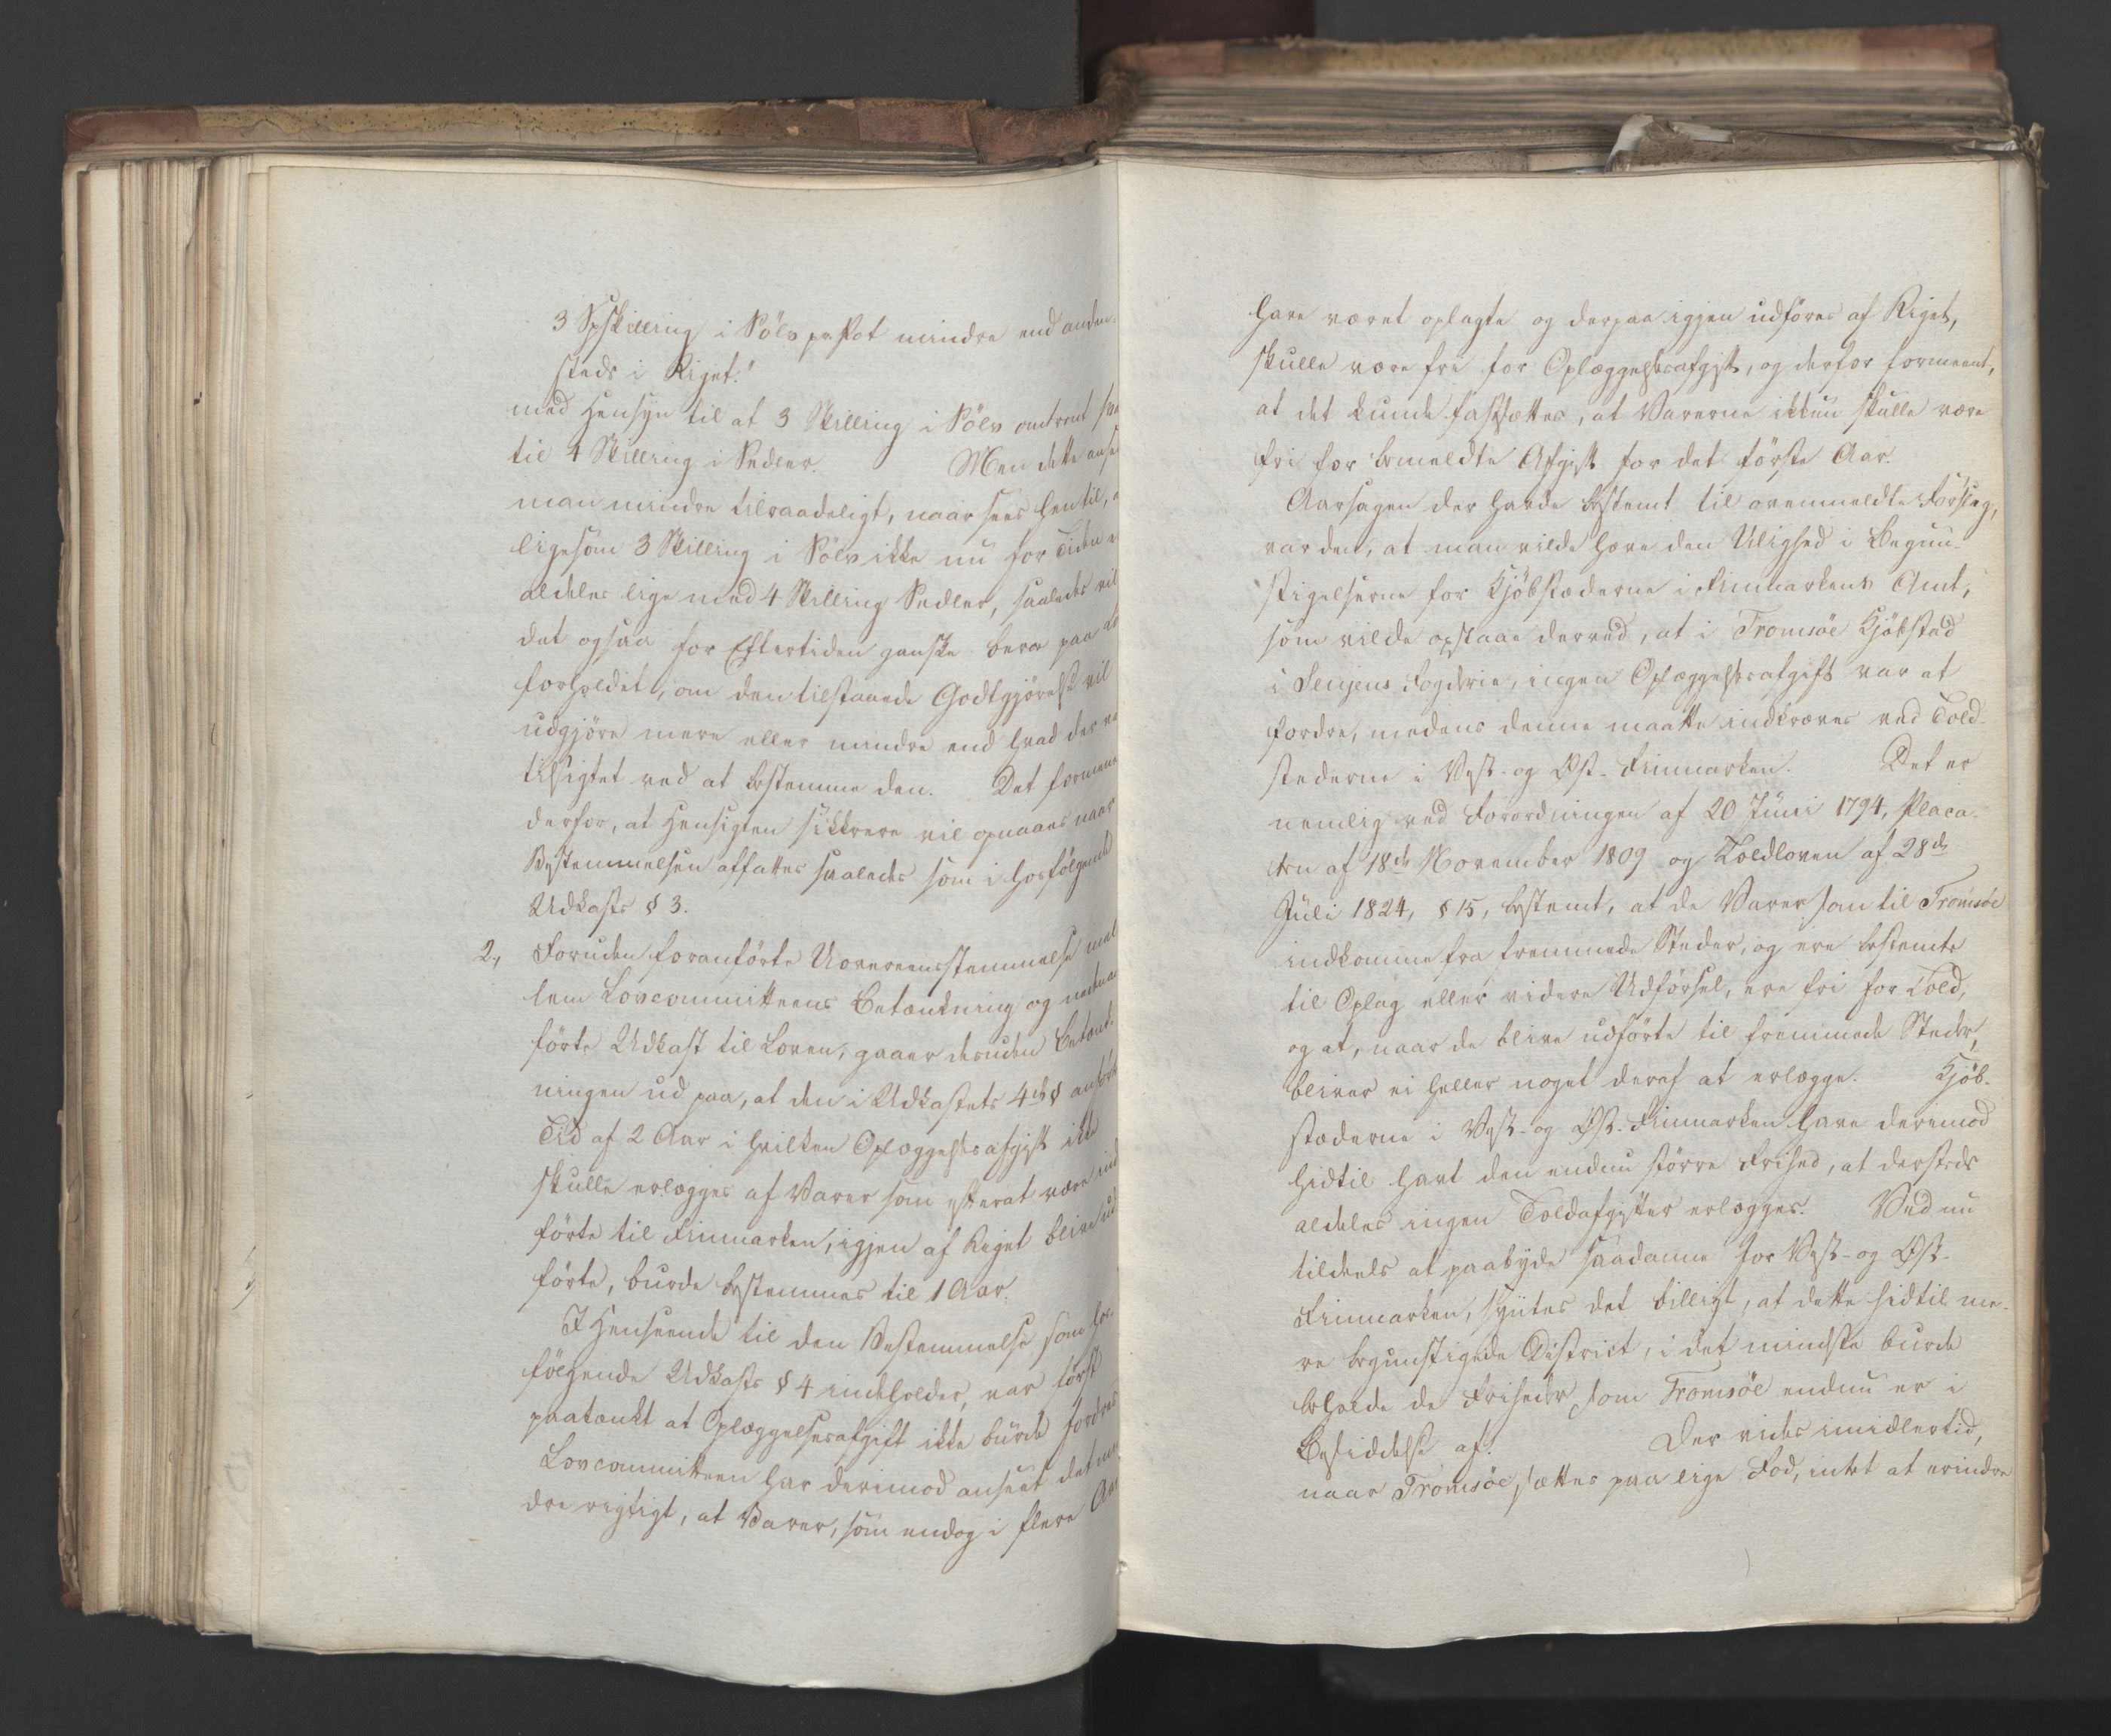 3 Spskilling i Sölv pr Pot mindre end anden-
steds i Riget."
med Hensyn til at 3 Skilling i Sölv omtrent sva
til 4 Skilling i Sedler. Men dette anse
man mindre tilraadeligt, naar sees hen til, a
ligesom 3 Skilling i Sölv ikke nu for Tiden e
aldeles lige med 4 Skilling Sedler, saaledes vil
det ogsaa for Eftertiden ganske beroe paa Co
forholdet, om den tilstaaede Godtgjörelse vil
udgjöre mere eller mindre end hvad der va
tilsigtet ved at bestemme den. Det formene
derfor, at Hensigten sikkrere vil opnaaes naar
Bestemmelsen affattes saaledes som i hosfölgende
Udkasts § 3.
2, Foruden foranförte Uovereensstemmelse mel
lem Lovcommitteens Betænkning og neden
förte Udkast til Loven, gaaer desuden Betænk-
ningen ud paa, at den i Udkastets 4de § anförte
Tid af 2 Aar i hvilken Oplæggelsesafgift ikke
skulle erlægges af Varer som efterat være ind
förte til Finmarken, igjen af Riget blive ud
förte, burde bestemmes til 1 Aar.
I Henseende til den Bestemmelse som hos-
fölgende Udkasts § 4 indeholder, var först
paatænkt at Oplæggelsesafgift ikke burde fordres
Lovcommitteen har derimod anseet det min
dre rigtigt, at Varer, som endog i flere Aar
have været oplagte og derpaa igjen udföres af Riget,
skulle være frie for Oplæggelsesafgift, og derfor formeent,
at det kunde fastsættes, at Varerne ikkun skulle være
fri for bemeldte Afgift for det förste Aar.
Aarsagen der havde bestemt til ovenmeldte Forslag,
var den, at man vilde hæve den Ulighed i Begun-
stigelserne for Kjöbstæderne i Finmarkens Amt,
som vilde opstaae derved, at i Tromsöe Kjöbstad
i Senjens Fogderie, ingen Oplæggelsesafgift var at
fordre, medens denne maatte indkræves ved Told-
stederne i Vest- og Øst-Finmarken. Det er
nemlig ved Forordningen af 20 Juni 1794, Placa-
ten af 18de November 1809 og Toldloven af 28de
Juli 1824, § 15, bestemt, at de Varer som til Tromsöe
indkomme fra fremmede Steder, og ere bestemte
til Oplag eller videre Udförsel, ere fri for Told,
og at, naar de blive udförte til fremmede Steder,
bliver ei heller noget deraf at erlægge. Kjöb-
stæderne i Vest- og Øst-Finmarken have derimod
hidtil havt den endnu större Frihed, at dersteds
aldeles ingen Toldafgifter erlægges. Ved nu
tildeels at paabyde saadanne for Vest- og Øst-
Finmarken, syntes det billigt, at dette hidtil me-
re begunstigede District, i det mindste burde
beholde de Friheder som Tromsöe endnu er i
Besiddelse af. Der vides imidlertid,
naar Tromsöe sættes paa lige Fod, intet at erindre